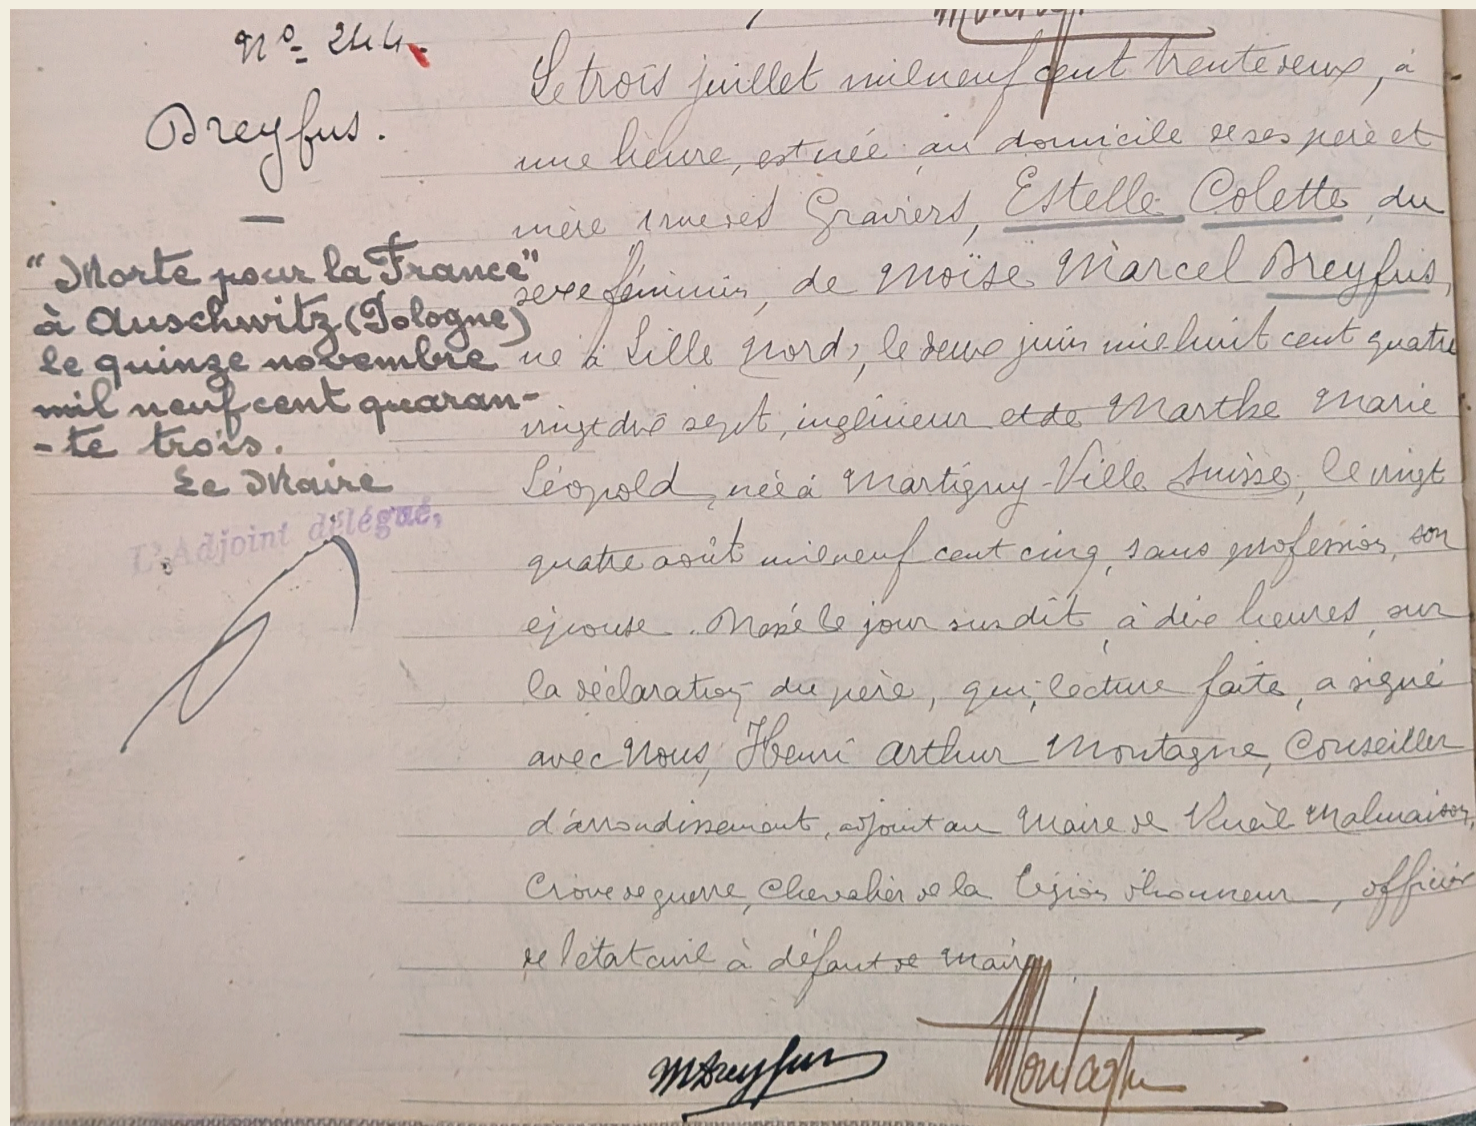 No 244.
Dreyfus.
"Morte pour la France"
à Auschwitz (Pologne)
le quinze novembre
mil neuf cent quaran-
-te trois.
Le Maire
L'Adjoint délégué,
Le trois juillet mil neuf cent trente deux, à
une heure, est née au domicile de ses père et
mère rue des Graviers, Estelle Colette, du
sexe féminin, de Moïse Marcel Dreyfus,
né à Lille Nord, le deux juin mil huit cent quatre
vingt dix sept, ingénieur et de Marthe Marie
Léopold, née à Martigny-Ville Suisse, le vingt
quatre août mil neuf cent cinq, sans profession, son
épouse. Dressé le jour susdit, à dix heures, sur
la déclaration du père, qui, lecture faite, a signé
avec Nous, Henri Arthur Montagne, Conseiller
d'arrondissement, adjoint au Maire de Rueil Malmaison,
Croix de guerre, Chevalier de la Légion d'honneur, officier
de l'état civil à défaut de Maire.
MDreyfus
Montagne